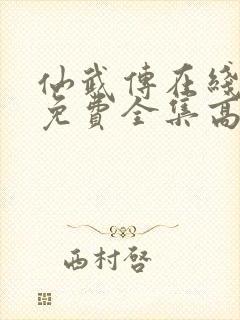 仙武傳在綫
免費全集高
西村啓